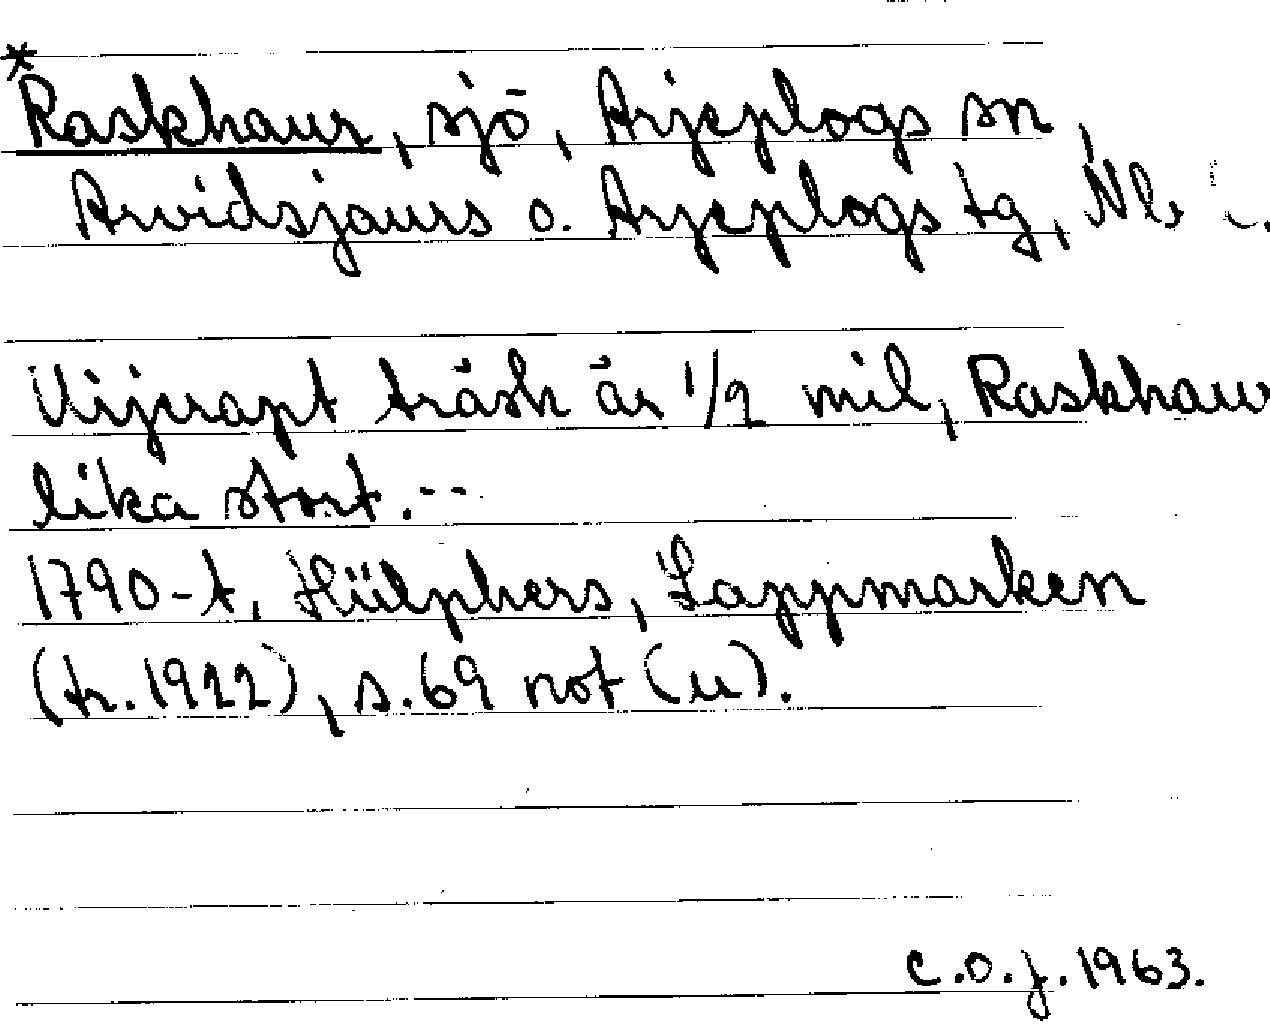 *Raskhaur, sjö, Arjeplogs sn,
Arvidsjaurs o. Arjeplogs tg, Nb
träsk är 1/2 mil, Raskhaur
lika stort. --
1790-t, Hülphers, Lappmarken
(tr. 1922), s. 69 not (u).
C.O.J. 1963.